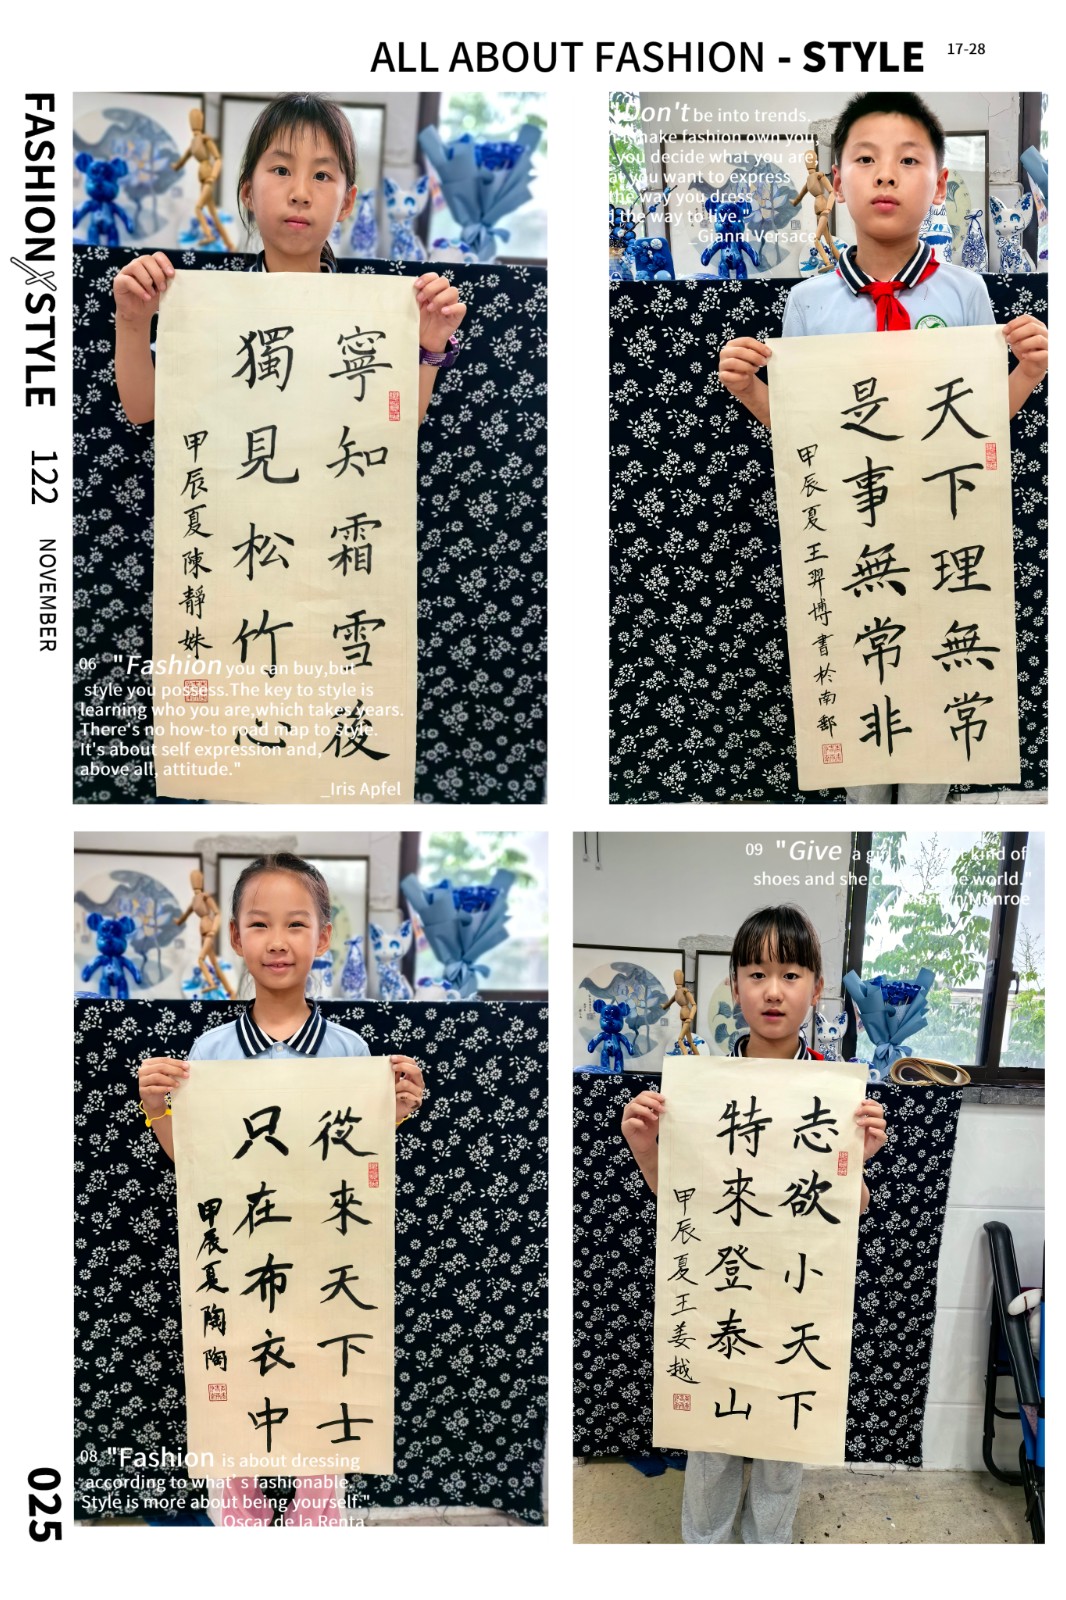 ALL ABOUT FASHION - STYLE 17-28
FASHION X STYLE 122 NOVEMBER
025
寧知霜雪後
獨見松竹心
甲辰夏陳靜姝
06 "Fashion you can buy,but
style you possess.The key to style is
learning who you are,which takes years.
There's no how-to road map to style.
It's about self expression and,
above all, attitude."
_Iris Apfel
Don't be into trends.
make fashion own you,
you decide what you are,
you want to express
the way you dress
the way to live."
_Gianni Versace
天下理無常
是事無常非
甲辰夏王羿博書於南鄱
從來天下士
只在布衣中
甲辰夏陶陶
08 "Fashion is about dressing
according to what's fashionable.
Style is more about being yourself."
Oscar de la Renta
09 "Give a girl kind of
shoes and she world."
Monroe
志欲小天下
特來登泰山
甲辰夏王姜越